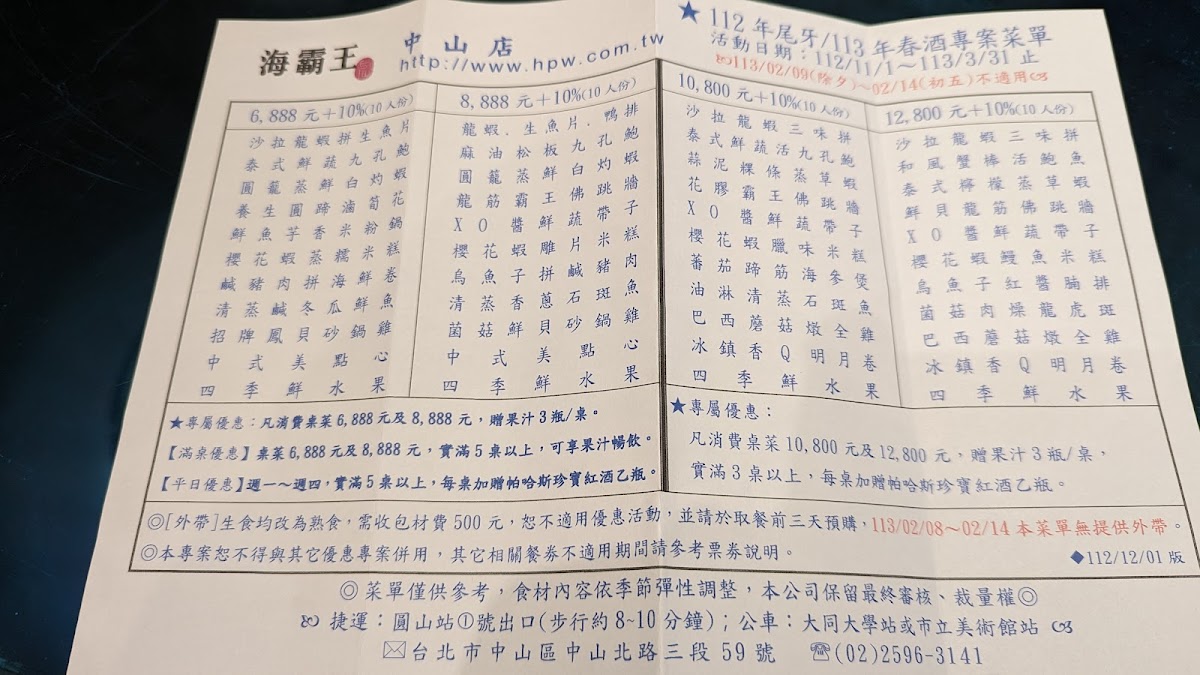 海霸王
中山店
http://www.hpw.com.tw
★112年尾牙/113年春酒專案菜單
活動日期：112/11/1～113/3/31止
113/02/09(除夕)～02/14(初五)不適用
6,888元＋10%(10人份)
沙拉龍蝦拼生魚片
泰式鮮蔬九孔鮑
圓籠蒸鮮白灼蝦
養生圓蹄滷筍花
鮮魚芋香米粉鍋
櫻花蝦蒸糯米糕
鹹豬肉拼海鮮卷
清蒸鹹冬瓜鮮魚
招牌鳳貝砂鍋雞
中式美點心
四季鮮水果
8,888元＋10%(10人份)
龍蝦、生魚片、鴨排
麻油松板九孔鮑
圓籠蒸鮮白灼蝦
龍筋霸王佛跳牆
XO醬鮮蔬帶子
櫻花蝦雕片米糕
烏魚子拼鹹豬肉
清蒸香蔥石斑魚
菌菇鮮貝砂鍋雞
中式美點心
四季鮮水果
10,800元＋10%(10人份)
沙拉龍蝦三味拼
泰式鮮蔬活九孔鮑
蒜泥粿條蒸草蝦
花膠霸王佛跳牆
XO醬鮮蔬帶子
櫻花蝦臘味米糕
蕃茄蹄筋海參煲
油淋清蒸石斑魚
巴西蘑菇燉全雞
冰鎮香Q明月卷
四季鮮水果
12,800元＋10%(10人份)
沙拉龍蝦三味拼
和風蟹棒活鮑魚
泰式檸檬蒸草蝦
鮮貝龍筋佛跳牆
XO醬鮮蔬帶子
櫻花蝦鰻魚米糕
烏魚子紅醬腩排
菌菇肉燥龍虎斑
巴西蘑菇燉全雞
冰鎮香Q明月卷
四季鮮水果
★專屬優惠：凡消費桌菜6,888元及8,888元，贈果汁3瓶/桌。
【滿桌優惠】桌菜6,888元及8,888元，實滿5桌以上，可享果汁暢飲。
【平日優惠】週一～週四，實滿5桌以上，每桌加贈帕哈斯珍寶紅酒乙瓶。
★專屬優惠：
凡消費桌菜10,800元及12,800元，贈果汁3瓶/桌，
實滿3桌以上，每桌加贈帕哈斯珍寶紅酒乙瓶。
◎[外帶]生食均改為熟食，需收包材費500元，恕不適用優惠活動，並請於取餐前三天預購，113/02/08～02/14本菜單無提供外帶。
◎本專案恕不得與其它優惠專案併用，其它相關餐券不適用期間請參考票券說明。
◆112/12/01版
◎菜單僅供參考，食材內容依季節彈性調整，本公司保留最終審核、裁量權◎
捷運：圓山站①號出口(步行約8~10分鐘)；公車：大同大學站或市立美術館站
✉台北市中山區中山北路三段59號 ☎(02)2596-3141